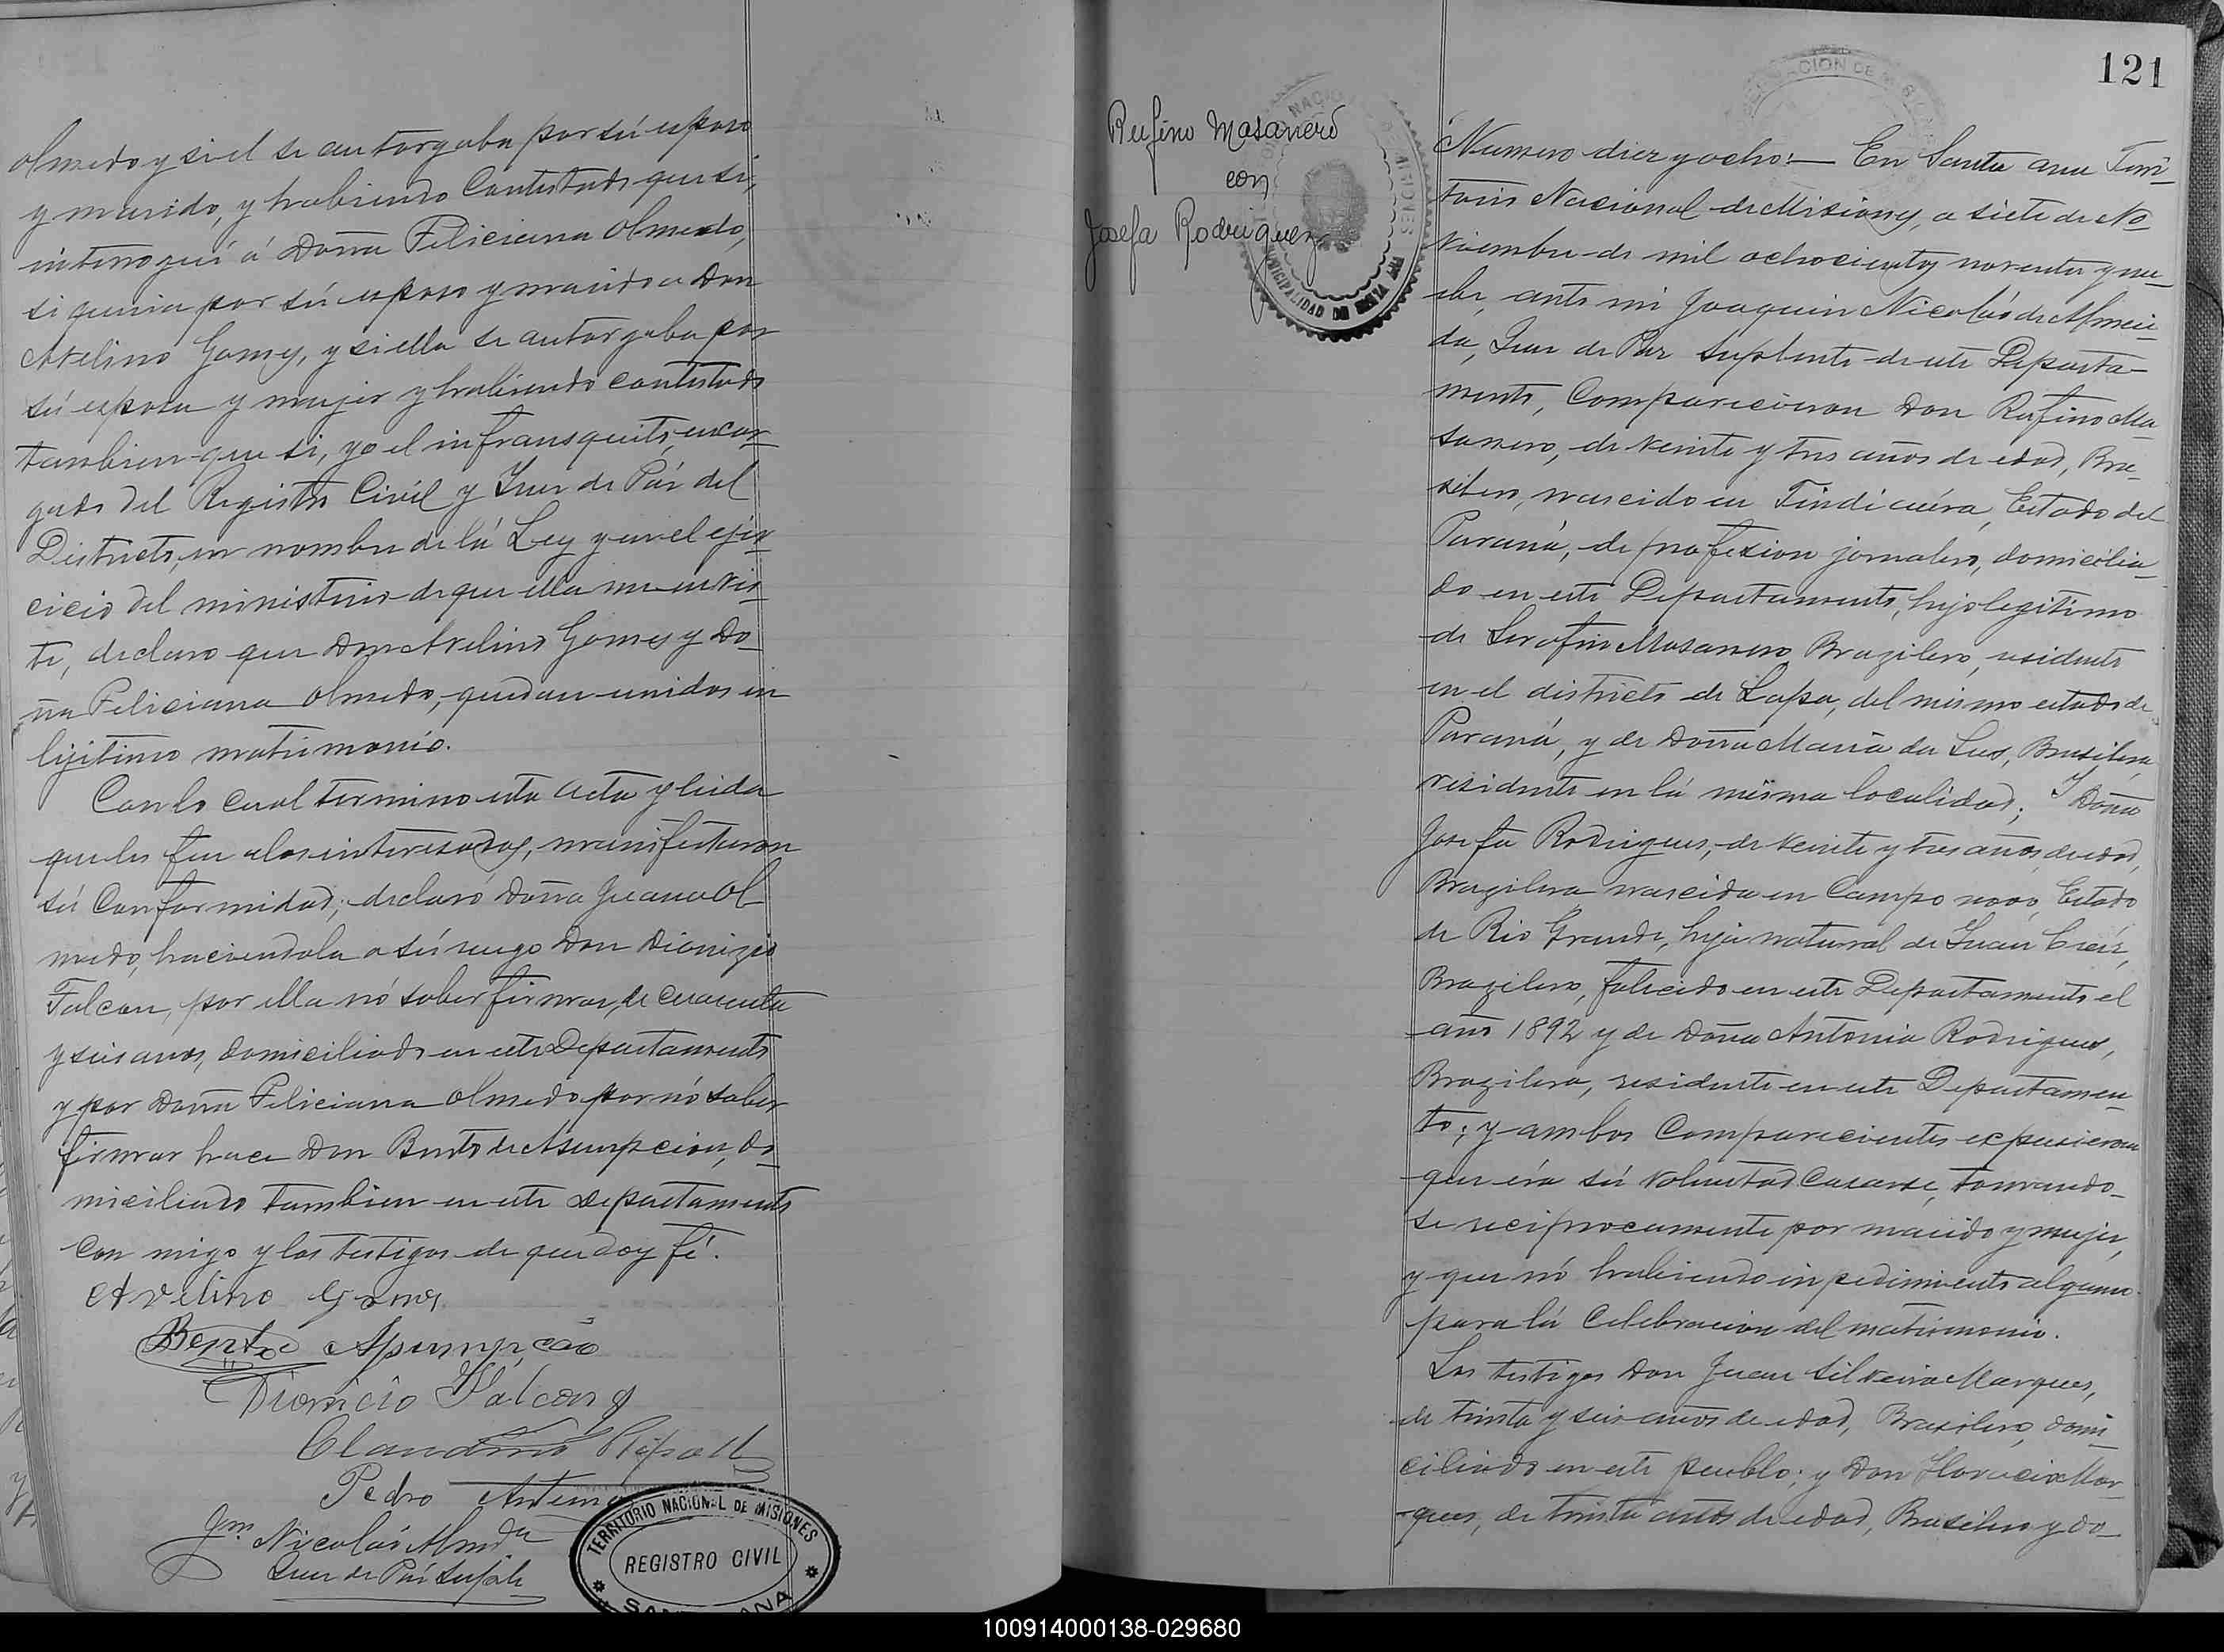 Olmedo y si el se autorgaba por sú esposo
y marido, y habiendo Contestado que si,
interrogué á Doña Feliciana Olmedo,
si queria por sú esposo y marido a Don
Avelino Gomes, y si ella se autorgaba por
sú esposa y mujer y habiendo contestado
tambien que si, yo el infransquito, encar
gado del Registro Civil y Juez de Páz del
Districto, en nombre de lá Ley y en el ejer
cicio del ministerio de que ella me envis
te, declaro que Don Avelino Gomes y Do
ña Feliciana Olmedo, quedan unidos en
lijitimo matrimonio.
Con lo cual termino esta acta y leida
que les fue a los interesados, manifestaron
sú Conformidad; declaró Doña Juana Ol
medo, haciendola a sú ruego Don Dionizio
Falcon, por ella nó saber firmar, de cuarenta
y seis años, domiciliado en este Departamento
y por Doña Feliciana Olmedo por nó saber
firmar hace Don Bento de Asumpcion, do
miciliado tambien en este Departamento
con migo y los testigos de que doy fé.
Avelino Gomes
Bento Assumpcão
Dionicio Falcon
Claudino Ripoll
Pedro
Jm Nicolás Almda
Juez de Páz Suple
TERRITORIO NACIONAL DE MISIONES
REGISTRO CIVIL
SANTA ANA
121
Rufino Masanero
con
Josefa Rodriguez
MUNICIPALIDAD DE SANTA ANA
Numero diez y ocho:— En Santa Ana Terri
torio Nacional de Misiones, a siete de No
viembre de mil ochocientos noventa y nue
be, ante mi Joaquin Nicolás de Almei
da, Juez de Paz Suplente de este Departa
mento, Comparecieron Don Rufino Ma
sanero, de veinte y tres años de edad, Bra
silero, nascido en Tindicuéra, Estado del
Paraná, de profesion jornalero, domicilia
do en este Departamento, hijo legitimo
de Serafin Masanero Brazilero, residente
en el districto de Lapa, del mismo estado de
Paraná, y de Doña Maria da Lus, Brasilera
residente en lá misma localidad; Y Doña
Josefa Rodrigues, de veinte y tres años de edad,
Brazilera nascida en Campo novo, Estado
de Rio Grande, hija natural de Juan
Brazilero, falecido en este Departamento el
año 1892 y de Doña Antonia Rodrigues,
Brazilera, residente en este Departamen
to; y ambos Comparecientes expusieron
que éra sú voluntad Casarse, tomando
se reciprocamente por marido y mujer,
y que nó habiendo inpedimiento alguno
para lá Celebracion del matrimonio.
Los testigos Don Juan Silveira Marques,
de trinta y seis años de edad, Brasilero, domi
ciliado en este pueblo; y Don Horacio Mar
ques, de trinta años de edad, Brasilero y do
100914000138-029680